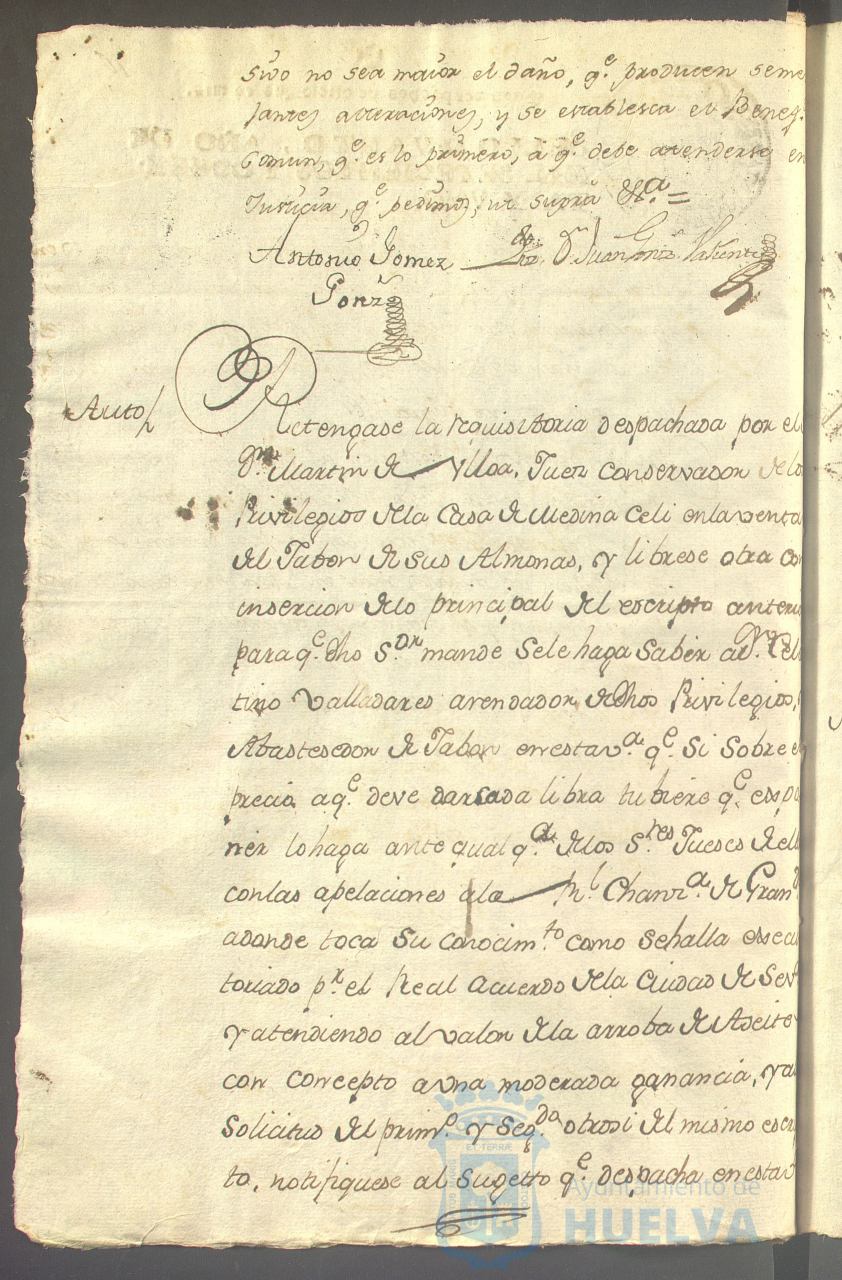 sivo no sea maior el daño, q.e producen seme
jantes alteraciones, y se establesca el Benef.
Comun, q.e es lo primero, a q.e debe atenderse en
Justicia, q.e pedimos, ut supra &.a =
Antonio Gomez
Gonz.s
D.n Juan Valiente
Auto
Retengase la requisitoria despachada por el
D.n Martin de Ulloa, Juez Conservador de los
Privilegios de la Casa de Medina Celi en la venta
del Jabon de sus Almonas, y librese otra con
insercion de lo principal del escripto anteri
para q.e dho S.or mande se le haga saber a D.n Cel
tino Valladares arrendador de dhos Privilegios,
Abastesedor de Jabon en esta v.a q.e si sobre el
precio a q.e deve dar cada libra tubiere q.e espo
ner lo haga ante qualq.a de los S.res Jueses de ell
con las apelaciones a la R.l Chanz.a de Gran.d
a donde toca su conosim.to como se halla esecu
toriado p.r el Real Acuerdo de la Ciudad de Sev.a
y atendiendo al valor de la arroba de Aseite
con concepto a una moderada ganancia, y a
solicitud del prim.o y seg.do otrosi del mismo escri
to, notifiquese al Sugetto q.e despacha en esta v
Ayuntamiento de
HUELVA